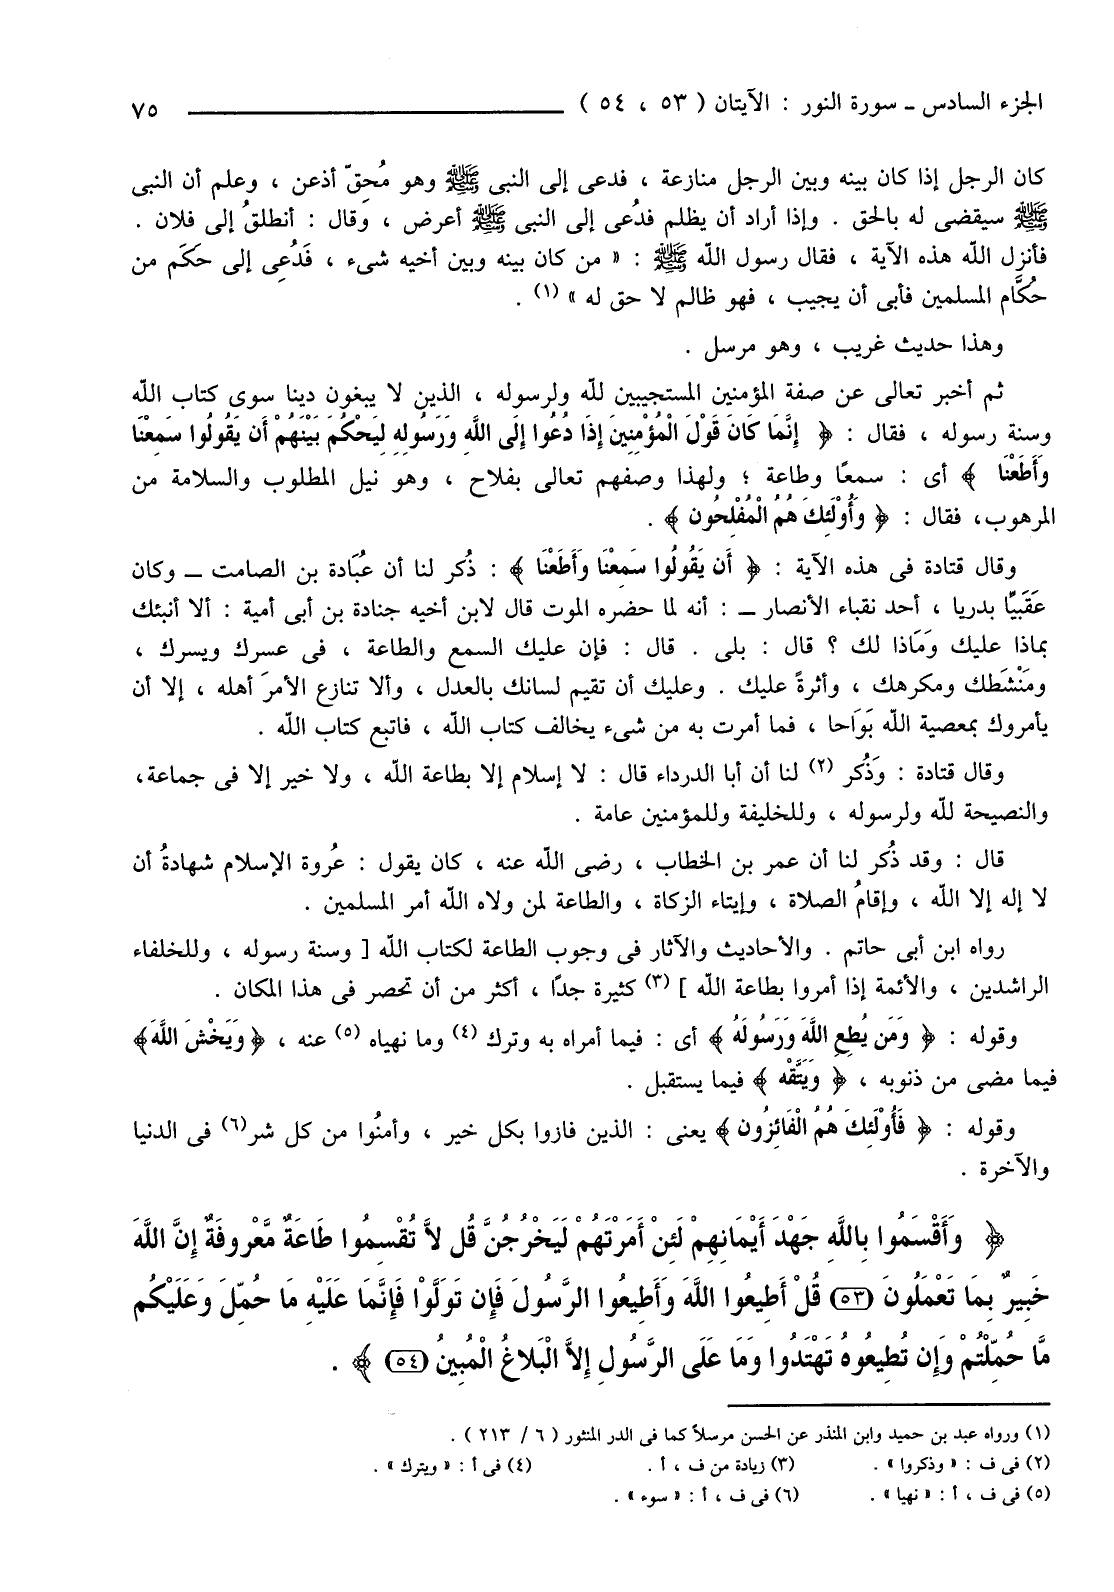 الجزء السادس ـ سورة النور : الآيتان ( ٥٣ ، ٥٤ ) ٧٥
كان الرجل إذا كان بينه وبين الرجل منازعة ، فدعى إلى النبى ﷺ وهو مُحِقّ أذعن ، وعلم أن النبى
ﷺ سيقضى له بالحق . وإذا أراد أن يظلم فدُعى إلى النبى ﷺ أعرض ، وقال : أنطلقُ إلى فلان .
فأنزل الله هذه الآية ، فقال رسول الله ﷺ : « من كان بينه وبين أخيه شىء ، فَدُعِى إلى حَكَم من
حُكَّام المسلمين فأبى أن يجيب ، فهو ظالم لا حق له » (١) .
وهذا حديث غريب ، وهو مرسل .
ثم أخبر تعالى عن صفة المؤمنين المستجيبين لله ولرسوله ، الذين لا يبغون دينا سوى كتاب الله
وسنة رسوله ، فقال : ﴿ إِنَّمَا كَانَ قَوْلَ الْمُؤْمِنِينَ إِذَا دُعُوا إِلَى اللَّهِ وَرَسُولِهِ لِيَحْكُمَ بَيْنَهُمْ أَن يَقُولُوا سَمِعْنَا
وَأَطَعْنَا ﴾ أى : سمعًا وطاعة ؛ ولهذا وصفهم تعالى بفلاح ، وهو نيل المطلوب والسلامة من
المرهوب، فقال : ﴿ وَأُوْلَئِكَ هُمُ الْمُفْلِحُون ﴾ .
وقال قتادة فى هذه الآية : ﴿ أَن يَقُولُوا سَمِعْنَا وَأَطَعْنَا ﴾ : ذُكر لنا أن عُبَادة بن الصامت ـ وكان
عَقَبيًّا بدريا ، أحد نقباء الأنصار ـ : أنه لما حضره الموت قال لابن أخيه جنادة بن أبى أمية : ألا أنبئك
بماذا عليك وَمَاذا لك ؟ قال : بلى . قال : فإن عليك السمع والطاعة ، فى عسرك ويسرك ،
ومَنْشَطك ومكرهك ، وأثرةً عليك . وعليك أن تقيم لسانك بالعدل ، وألا تنازع الأمرَ أهله ، إلا أن
يأمروك بمعصية الله بَوَاحا ، فما أمرت به من شىء يخالف كتاب الله ، فاتبع كتاب الله .
وقال قتادة : وَذُكر (٢) لنا أن أبا الدرداء قال : لا إسلام إلا بطاعة الله ، ولا خير إلا فى جماعة،
والنصيحة لله ولرسوله ، وللخليفة وللمؤمنين عامة .
قال : وقد ذُكر لنا أن عمر بن الخطاب ، رضى الله عنه ، كان يقول : عُروة الإسلام شهادةُ أن
لا إله إلا الله ، وإقامُ الصلاة ، وإيتاء الزكاة ، والطاعة لمن ولاه الله أمر المسلمين .
رواه ابن أبى حاتم . والأحاديث والآثار فى وجوب الطاعة لكتاب الله [ وسنة رسوله ، وللخلفاء
الراشدين ، والأئمة إذا أمروا بطاعة الله ] (٣) كثيرة جدًا ، أكثر من أن تحصر فى هذا المكان .
وقوله : ﴿ وَمَن يُطِعِ اللَّهَ وَرَسُولَهُ ﴾ أى : فيما أمراه به وترك (٤) وما نهياه (٥) عنه ، ﴿ وَيَخْشَ اللَّهَ ﴾
فيما مضى من ذنوبه ، ﴿ وَيَتَّقْه ﴾ فيما يستقبل .
وقوله : ﴿ فَأُوْلَئِكَ هُمُ الْفَائِزُون ﴾ يعنى : الذين فازوا بكل خير ، وأمنُوا من كل شر(٦) فى الدنيا
والآخرة .
﴿ وَأَقْسَمُوا بِاللَّهِ جَهْدَ أَيْمَانِهِمْ لَئِنْ أَمَرْتَهُمْ لَيَخْرُجُنَّ قُل لاَّ تُقْسِمُوا طَاعَةٌ مَّعْرُوفَةٌ إِنَّ اللَّهَ
خَبِيرٌ بِمَا تَعْمَلُونَ (٥٣) قُلْ أَطِيعُوا اللَّهَ وَأَطِيعُوا الرَّسُولَ فَإِن تَوَلَّوْا فَإِنَّمَا عَلَيْهِ مَا حُمِّلَ وَعَلَيْكُم
مَّا حُمِّلْتُمْ وَإِن تُطِيعُوهُ تَهْتَدُوا وَمَا عَلَى الرَّسُولِ إِلاَّ الْبَلاغُ الْمُبِينُ (٥٤) ﴾ .
(١) ورواه عبد بن حميد وابن المنذر عن الحسن مرسلاً كما فى الدر المنثور ( ٦ / ٢١٣ ) .
(٢) فى ف : « وذكروا » . (٣) زيادة من ف ، أ . (٤) فى أ : « ويترك » .
(٥) فى ف ، أ : « نهيا » . (٦) فى ف ، أ : « سوء » .